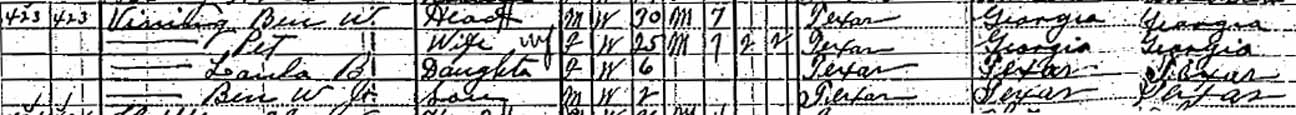 423 423 Vining Ben W. Head M W 30 M 7 Texas Georgia Georgia
—— Pet Wife F W 25 M 7 2 2 Texas Georgia Georgia
—— B. Daughter F W 6 Texas Texas Texas
—— Ben W Jr. Son M W 2 Texas Texas Texas